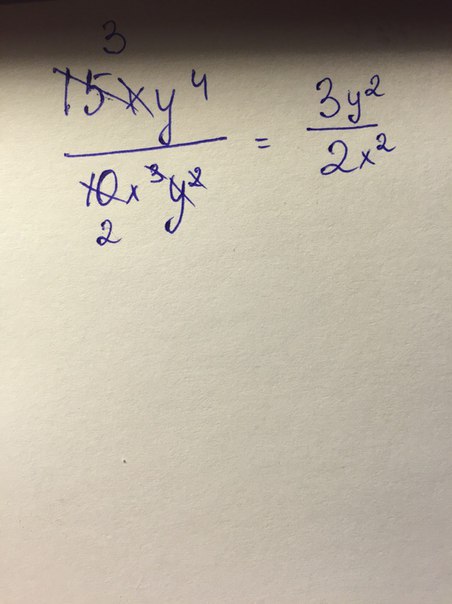 3
15xy⁴ / 10x³y² = 3y² / 2x²
2